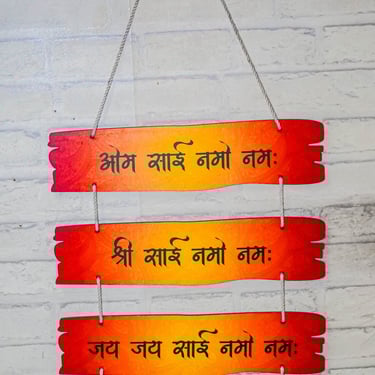 ओम साई नमो नमः
श्री साई नमो नमः
जय जय साई नमो नमः